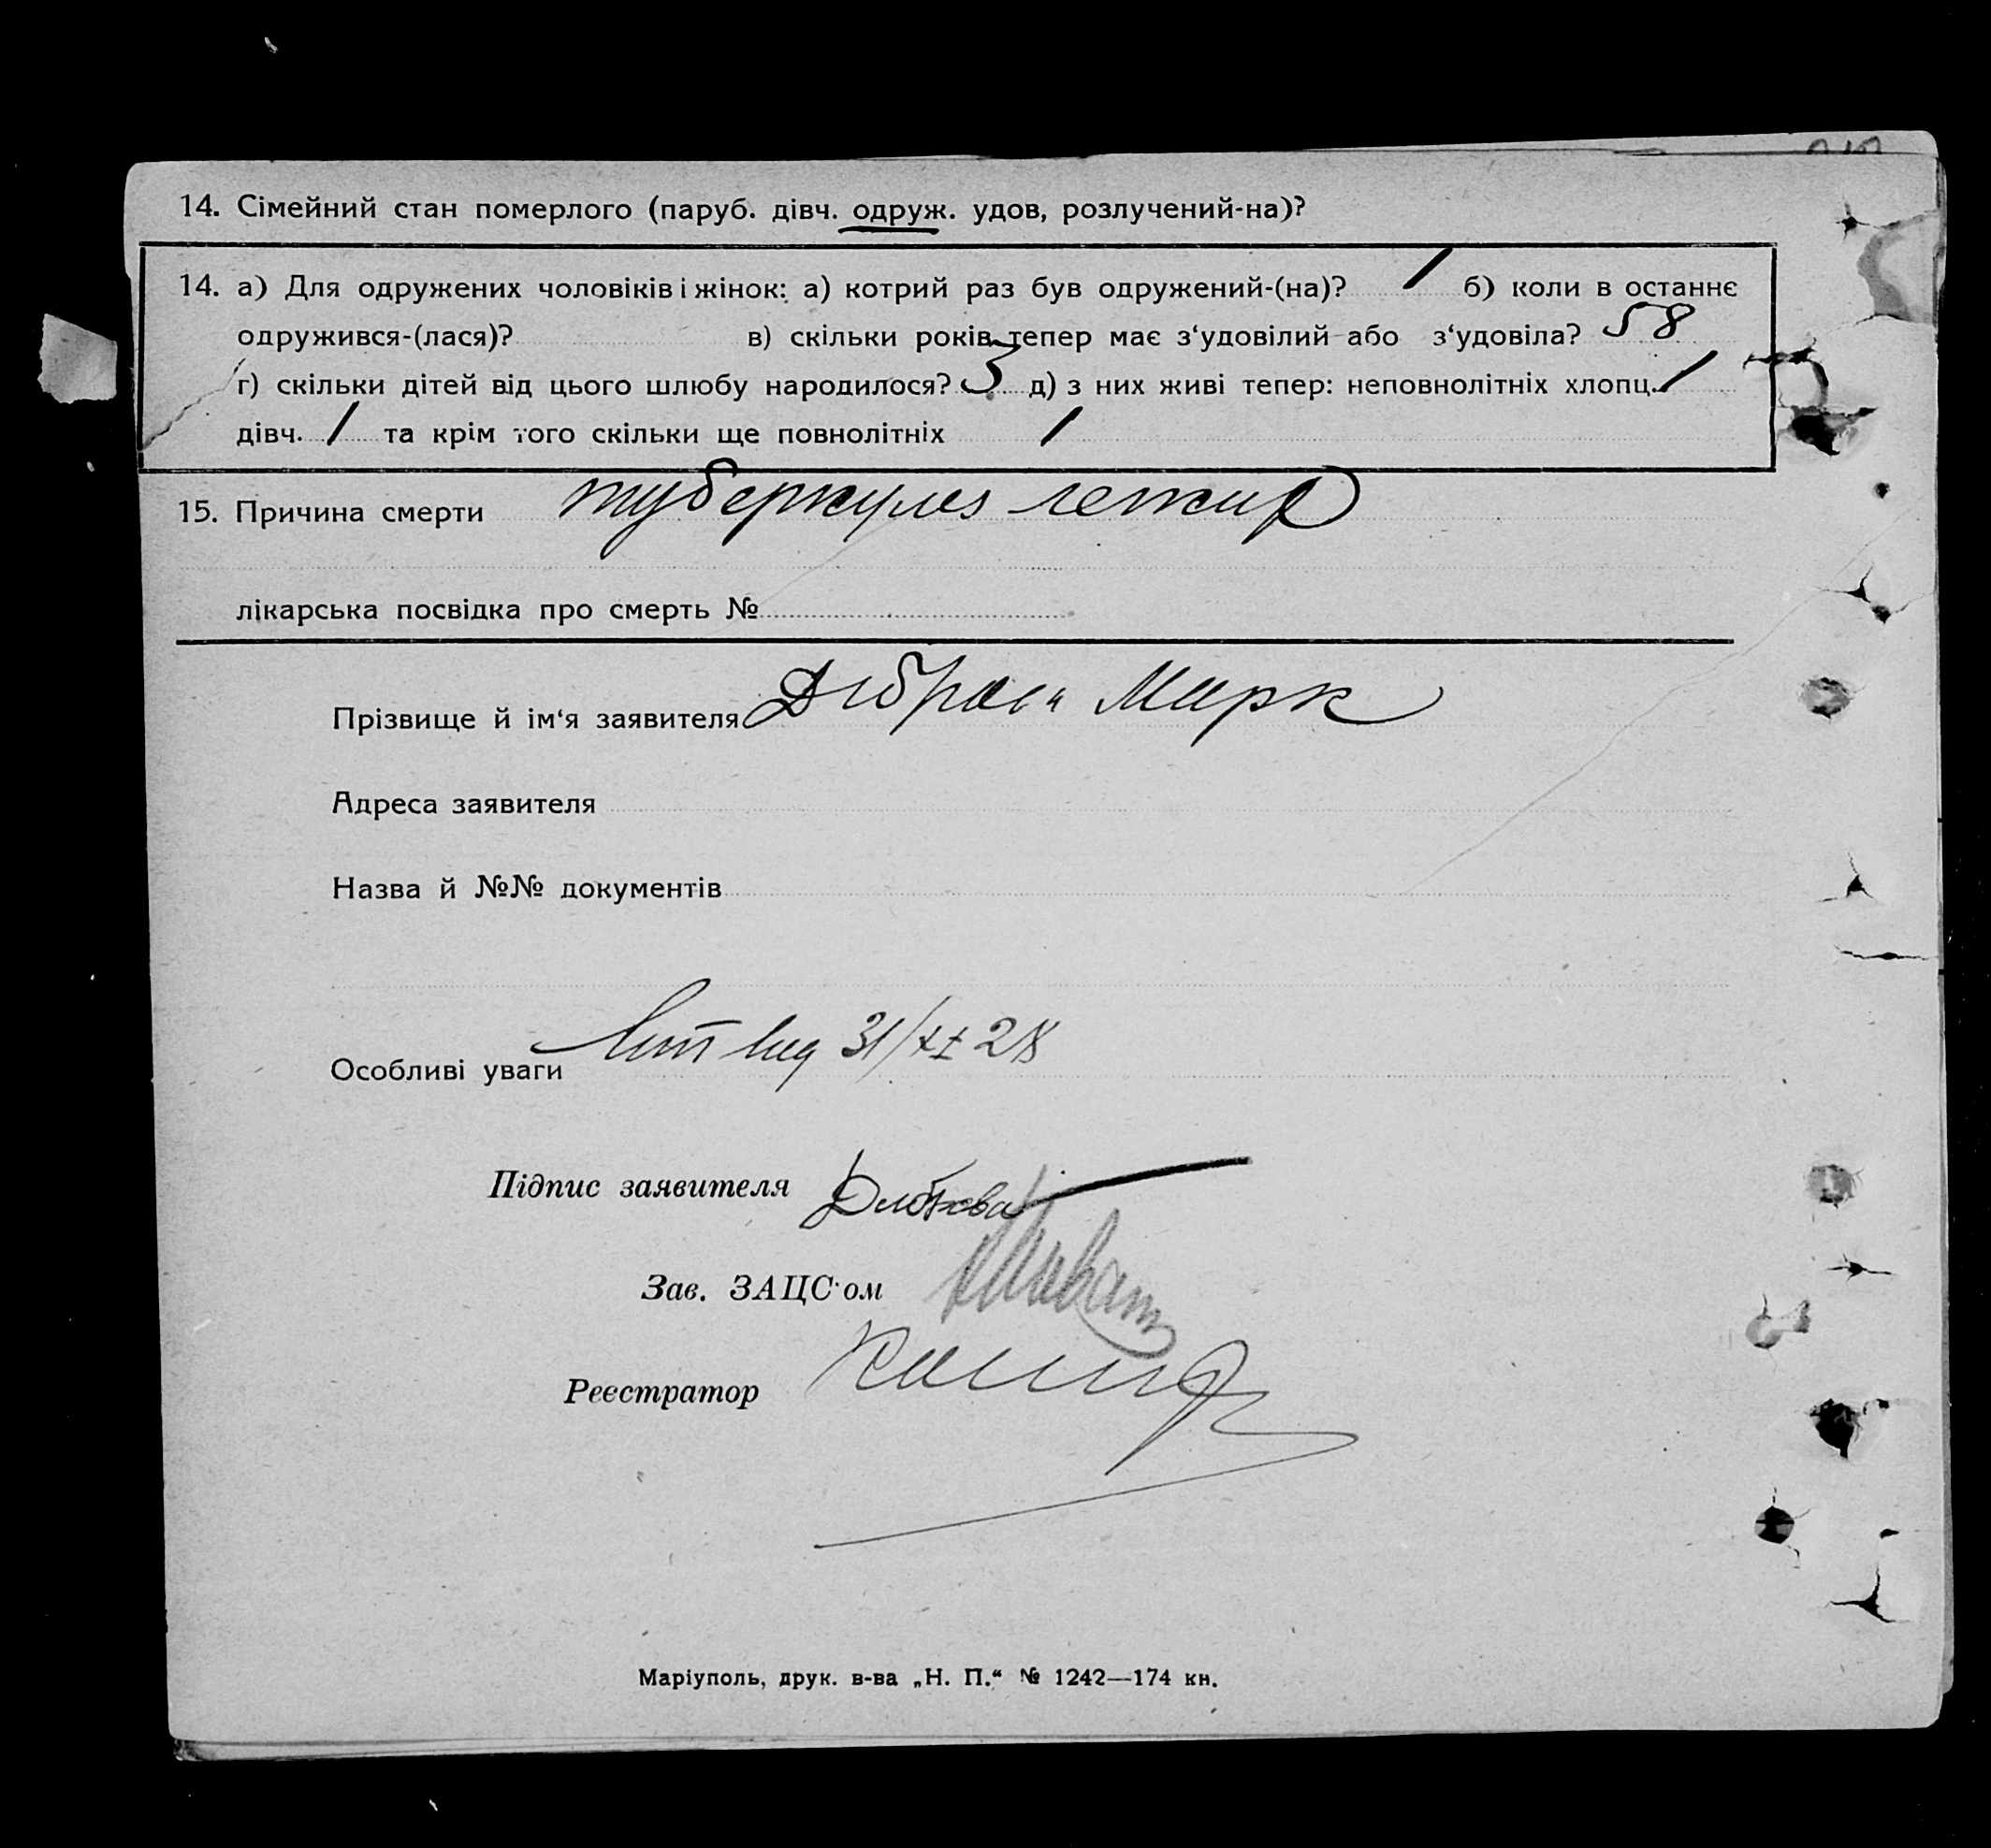 14. Сімейний стан померлого (паруб. дівч. одруж. удов, розлучений-на)?
14. а) Для одружених чоловіків і жінок: а) котрий раз був одружений-(на)? 1 б) коли в останнє
одружився-(лася)? в) скільки років тепер має з‘удовілий або з‘удовіла? 58
г) скільки дітей від цього шлюбу народилося? 3 д) з них живі тепер: неповнолітніх хлопц. 1
дівч. 1 та крім того скільки ще повнолітніх 1
15. Причина смерти туберкулез легких
лікарська посвідка про смерть №
Прізвище й ім‘я заявителя Марк
Адреса заявителя
Назва й №№ документів
Особливі уваги 31/XI 28
Підпис заявителя
Зав. ЗАЦС‘ом
Реєстратор
Маріуполь, друк. в-ва „Н. П.“ № 1242—174 кн.